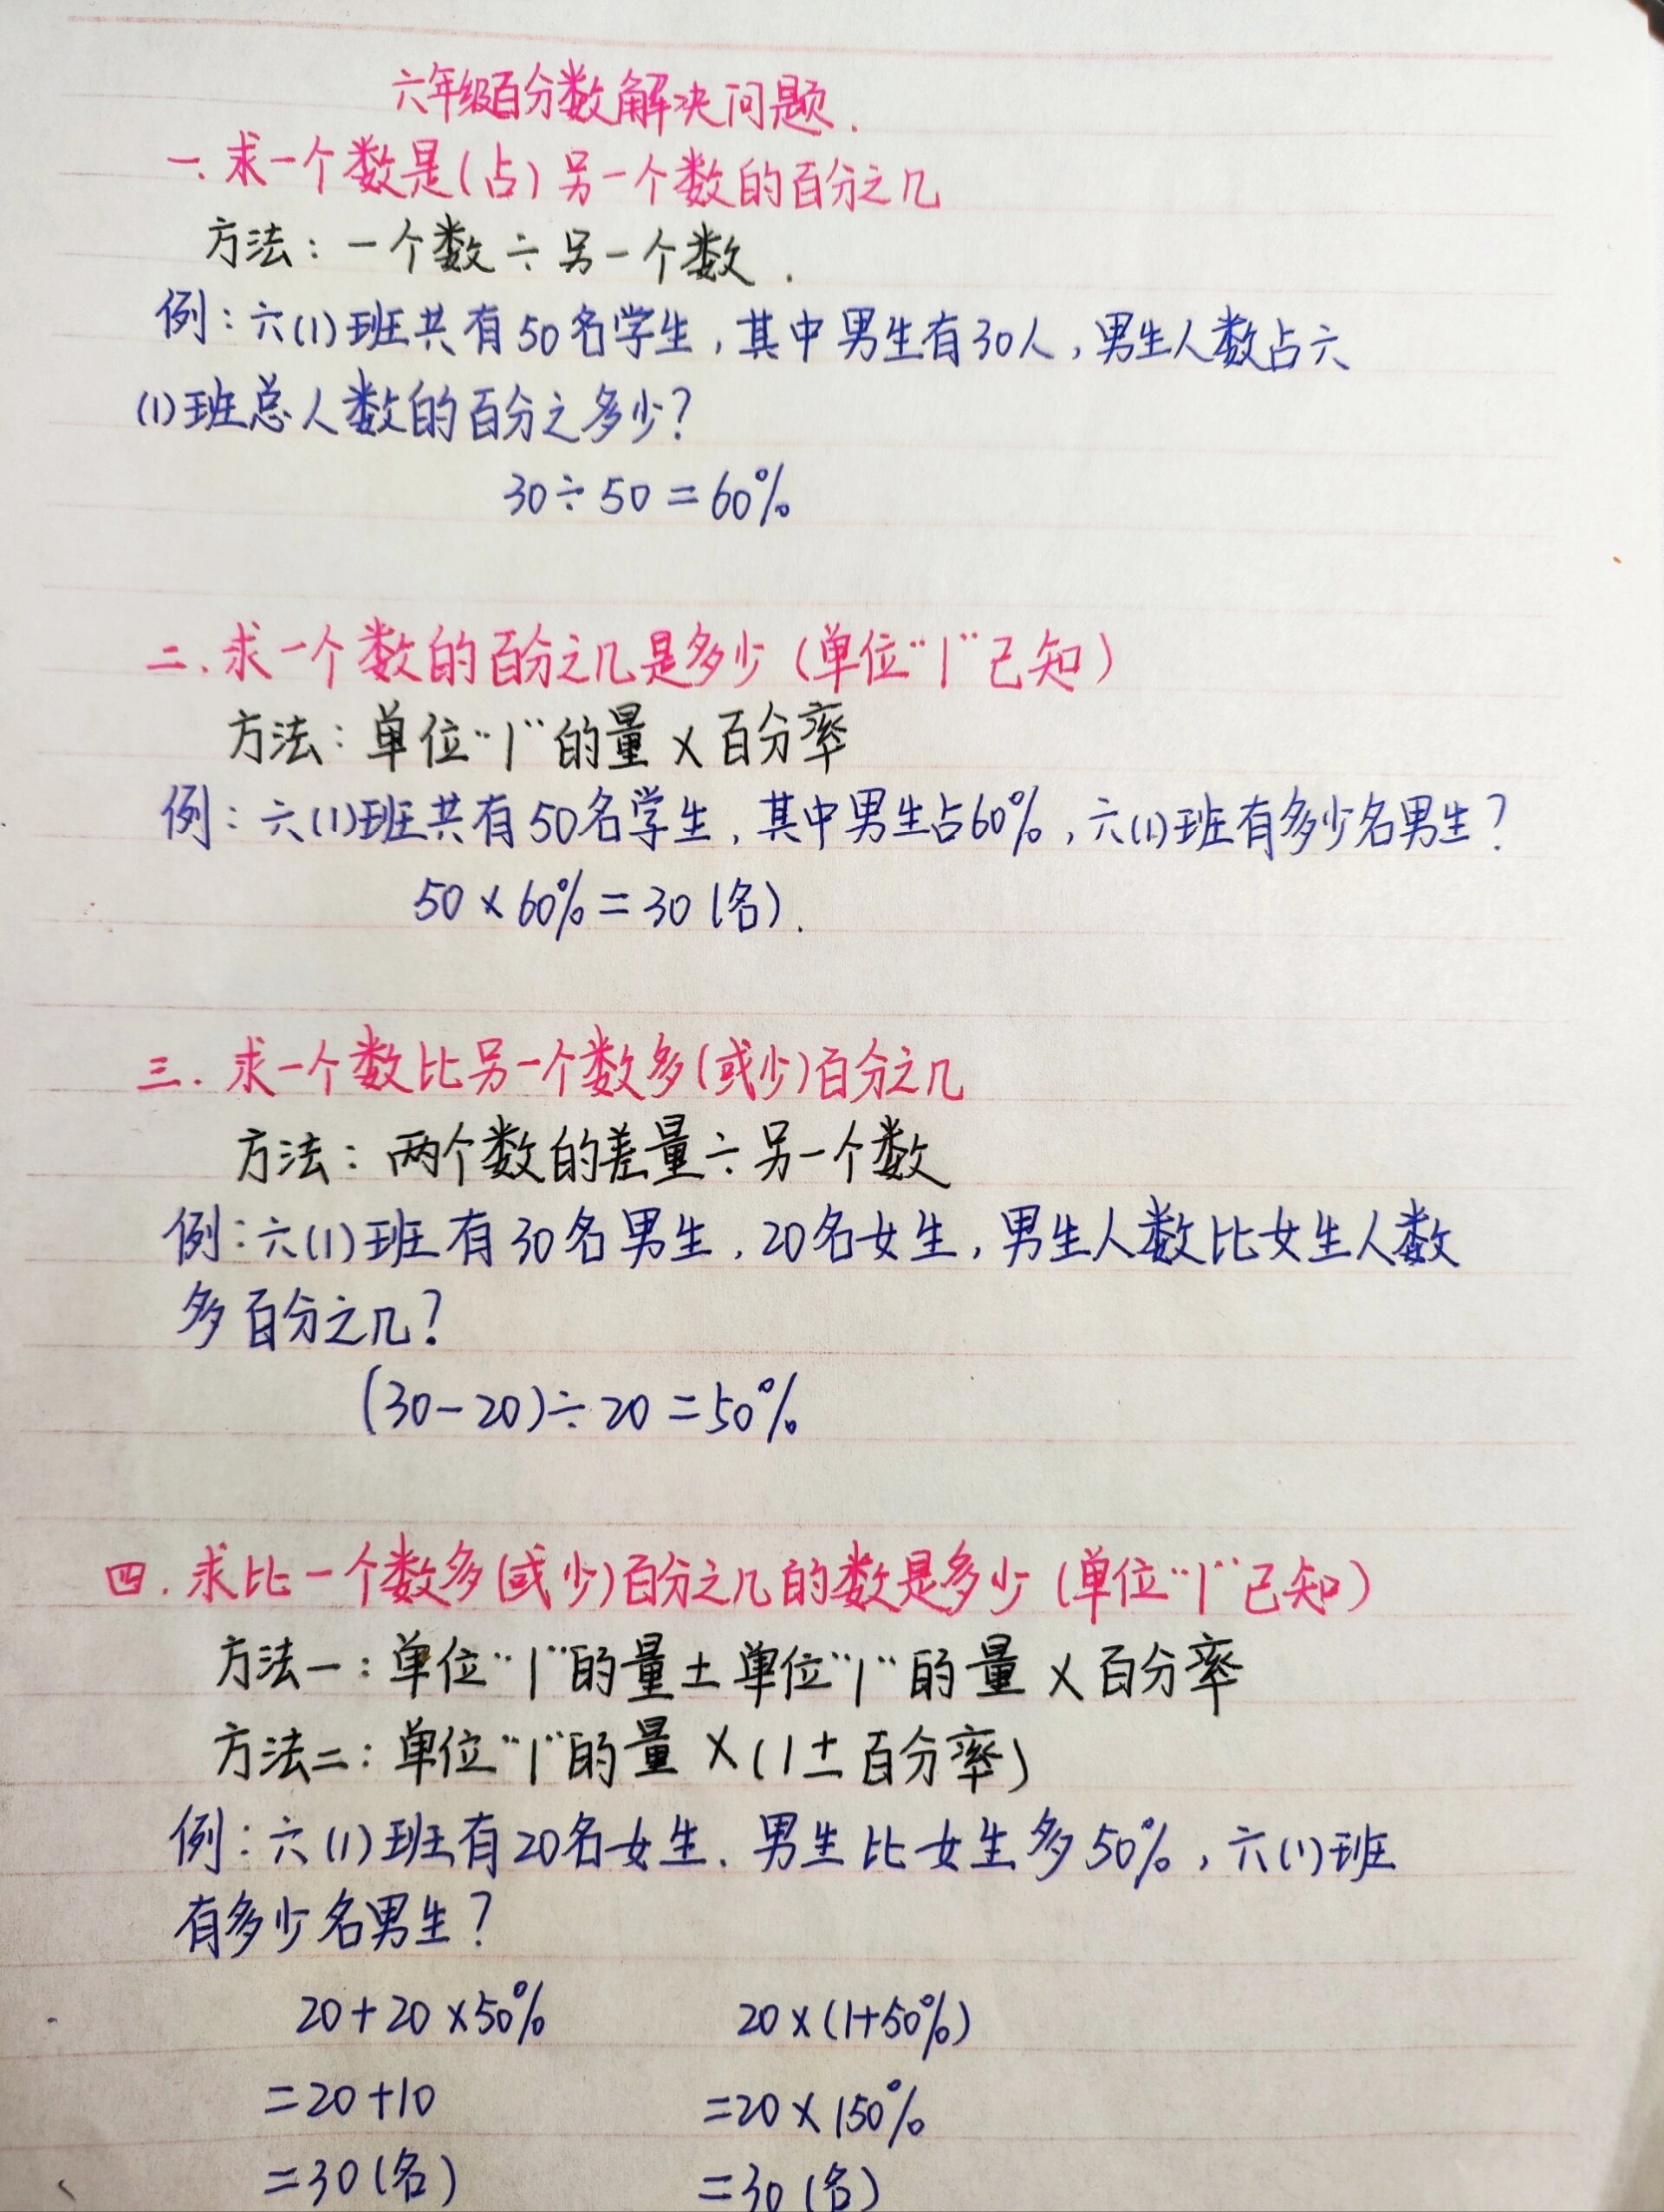 六年级百分数解决问题.
一.求一个数是(占)另一个数的百分之几
方法:一个数÷另一个数.
例:六(1)班共有50名学生,其中男生有30人,男生人数占六
(1)班总人数的百分之多少?
30÷50=60%
二.求一个数的百分之几是多少(单位“1”已知)
方法:单位“1”的量×百分率
例:六(1)班共有50名学生,其中男生占60%,六(1)班有多少名男生?
50×60%=30(名).
三.求一个数比另一个数多(或少)百分之几
方法:两个数的差量÷另一个数
例:六(1)班有30名男生,20名女生,男生人数比女生人数
多百分之几?
(30-20)÷20=50%
四.求比一个数多(或少)百分之几的数是多少(单位“1”已知)
方法一:单位“1”的量±单位“1”的量×百分率
方法二:单位“1”的量×(1±百分率)
例:六(1)班有20名女生.男生比女生多50%,六(1)班
有多少名男生?
20+20×50% 20×(1+50%)
=20+10 =20×150%
=30(名) =30(名)